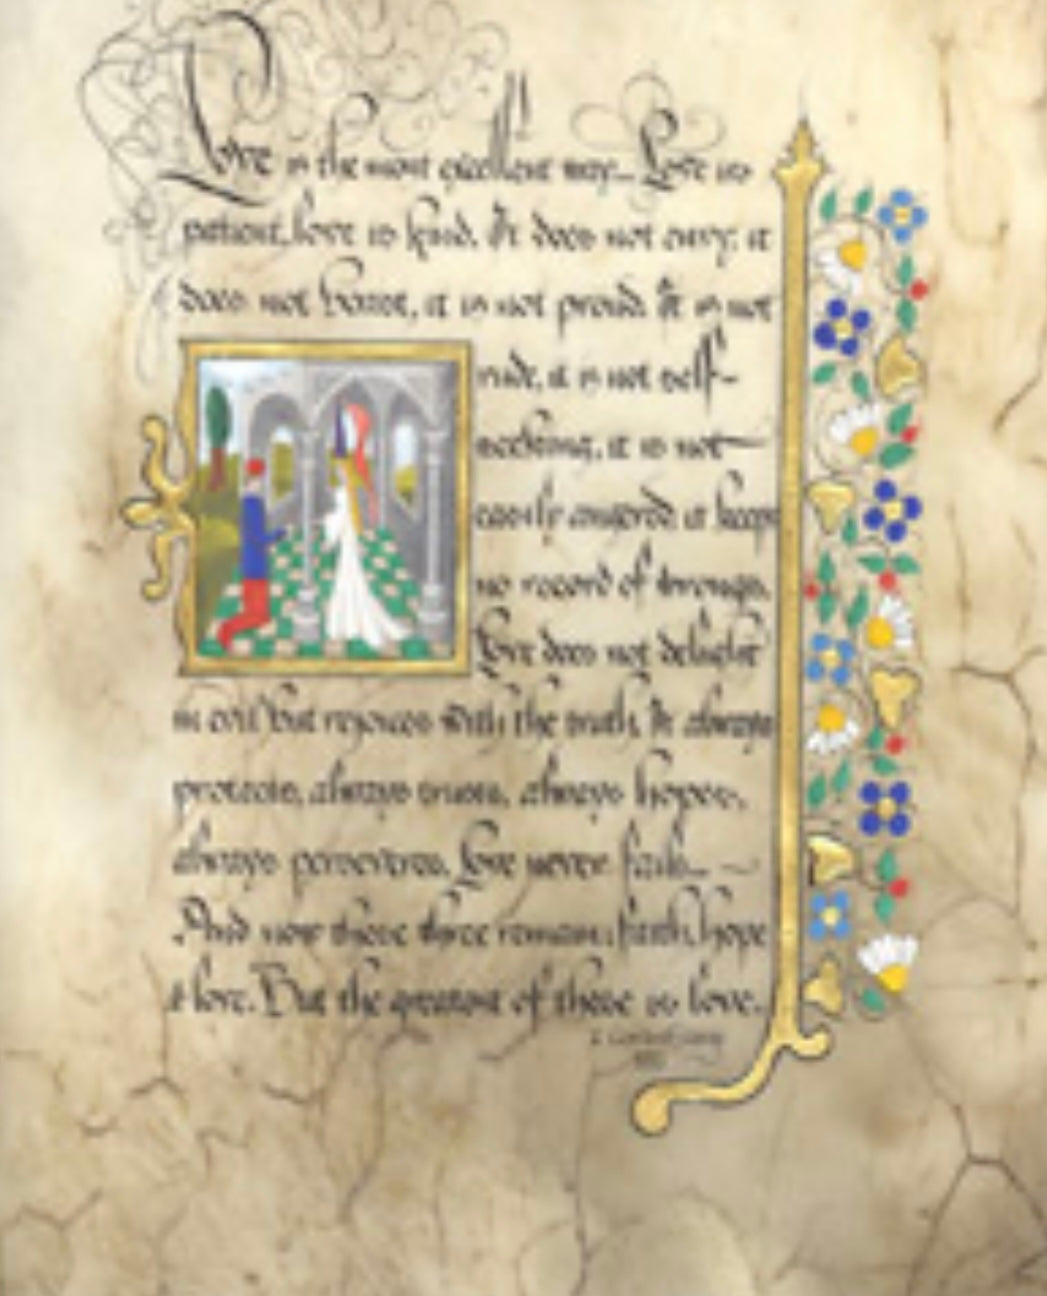 Love is the most excellent way. Love is
patient, love is kind. It does not envy, it
does not boast, it is not proud. It is not
rude, it is not self-
seeking, it is not
easily angered, it keeps
no record of wrongs.
Love does not delight
in evil but rejoices with the truth. It always
protects, always trusts, always hopes,
always perseveres. Love never fails.
And now these three remain: faith, hope
& love. But the greatest of these is love.